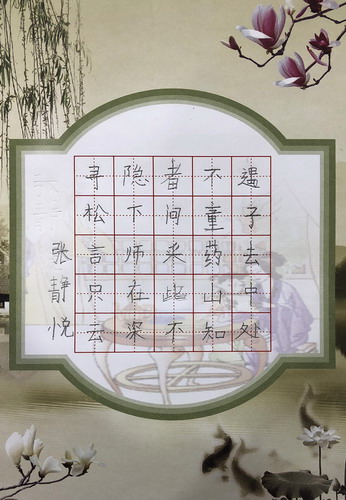 寻隐者不遇
松下问童子
言师采药去
只在此山中
云深不知处
张静悦